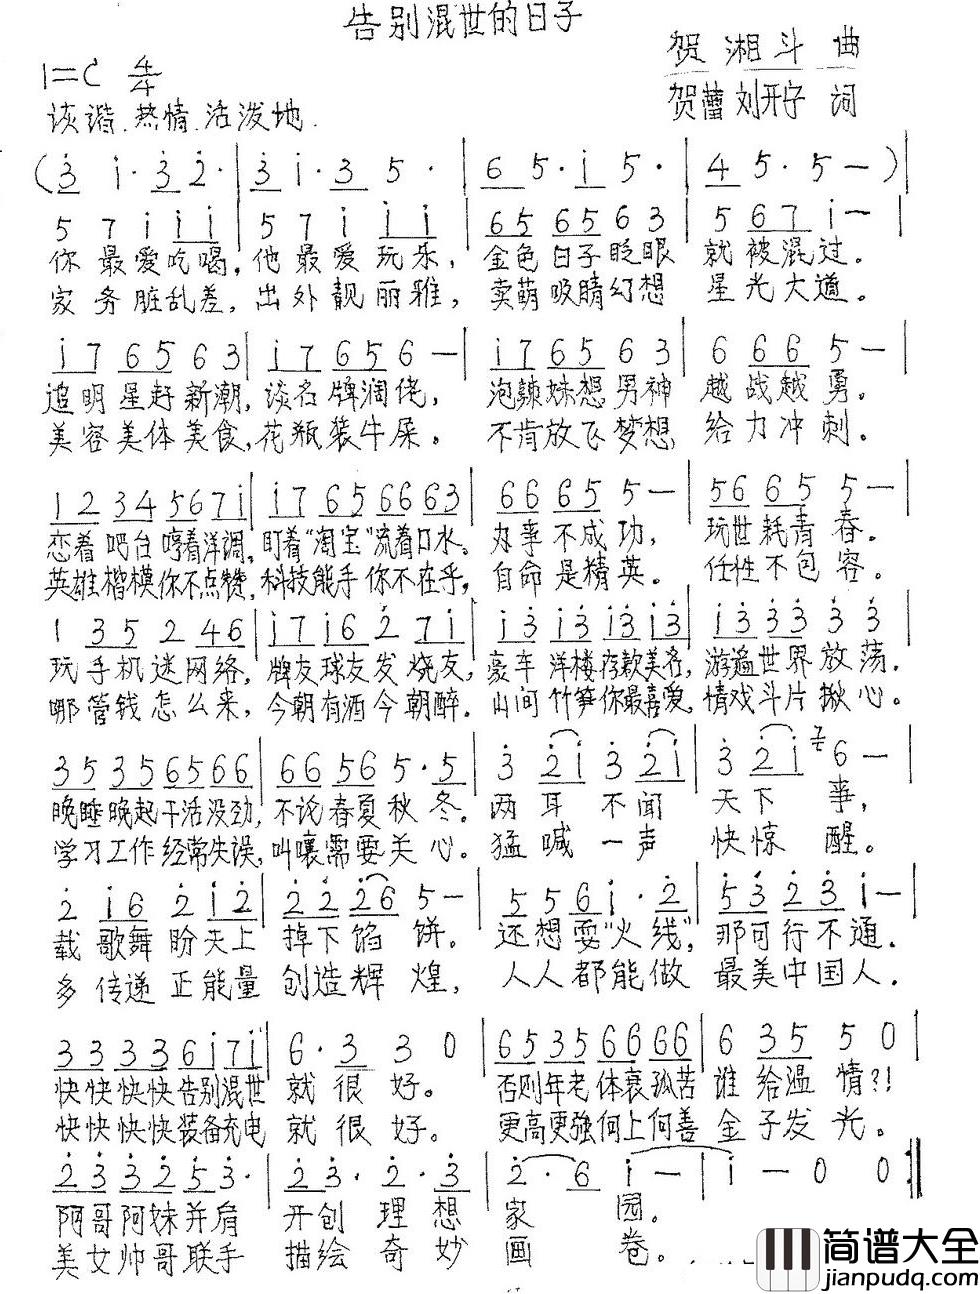 告别混世的日子
贺湘斗 曲
1=C 4/4
贺蕾 刘开宇 词
诙谐.热情.活泼地.
(3 i·3 2·|3 i·3 5·|6 5·i 5·|4 5·5 —)|
5 7 i i i|5 7 i i i|65 65 6 3|5 67 i —|
你最爱吃喝,他最爱玩乐,金色日子眨眼就被混过.
家务脏乱差,出外靓丽雅,卖萌吸睛幻想星光大道。
i7 65 63|i7 65 6 —|i7 65 6 3|6 66 5 —|
追明星赶新潮,谈名牌阔佬,泡辣妹想男神越战越勇。
美容美体美食,花瓶装牛屎。不肯放飞梦想,给力冲刺。
12 34 56 7i|i7 65 66 63|66 65 5 —|56 65 5 —|
恋着吧台哼着洋调,盯着"淘宝"流着口水。办事不成功,玩世耗青春。
英雄楷模你不点赞,科技能手你不在乎,自命是精英。任性不包容。
1 35 2 46|i7 i6 2 7i|i3 i3 i3 i3|i3 33 3 3|
玩手机迷网络,牌友球友发烧友,豪车洋楼存款美名,游遍世界放荡.
哪管钱怎么来,今朝有酒今朝醉.山间竹笋你最喜爱,情戏斗片揪心。
35 35 65 66|66 56 5·5|3 2i 3 2i|3 2i 6 —|
晚睡晚起干活没劲,不论春夏秋冬。两耳不闻天下事,
学习工作经常失误,叫嚷需要关心。猛喊一声快惊醒。
2 i6 2 i2|22 26 5 —|55 6i·2|53 23 i —|
载歌舞盼天上掉下馅饼。还想耍"火线",那可行不通.
多传递正能量创造辉煌,人人都能做最美中国人.
33 33 6i 7i|6·3 3 0|65 35 66 66|6 35 5 0|
快快快快告别混世就很好。否则年老体衰孤苦谁给温情?!
快快快快装备充电就很好。更高更强何上何善金子发光。
23 32 53·|23·2·3|2·6 i —|i — 0 0:||
阿哥阿妹并肩开创理想家园。
美女帅哥联手描绘奇妙画卷。
简谱大全
jianpudq.com